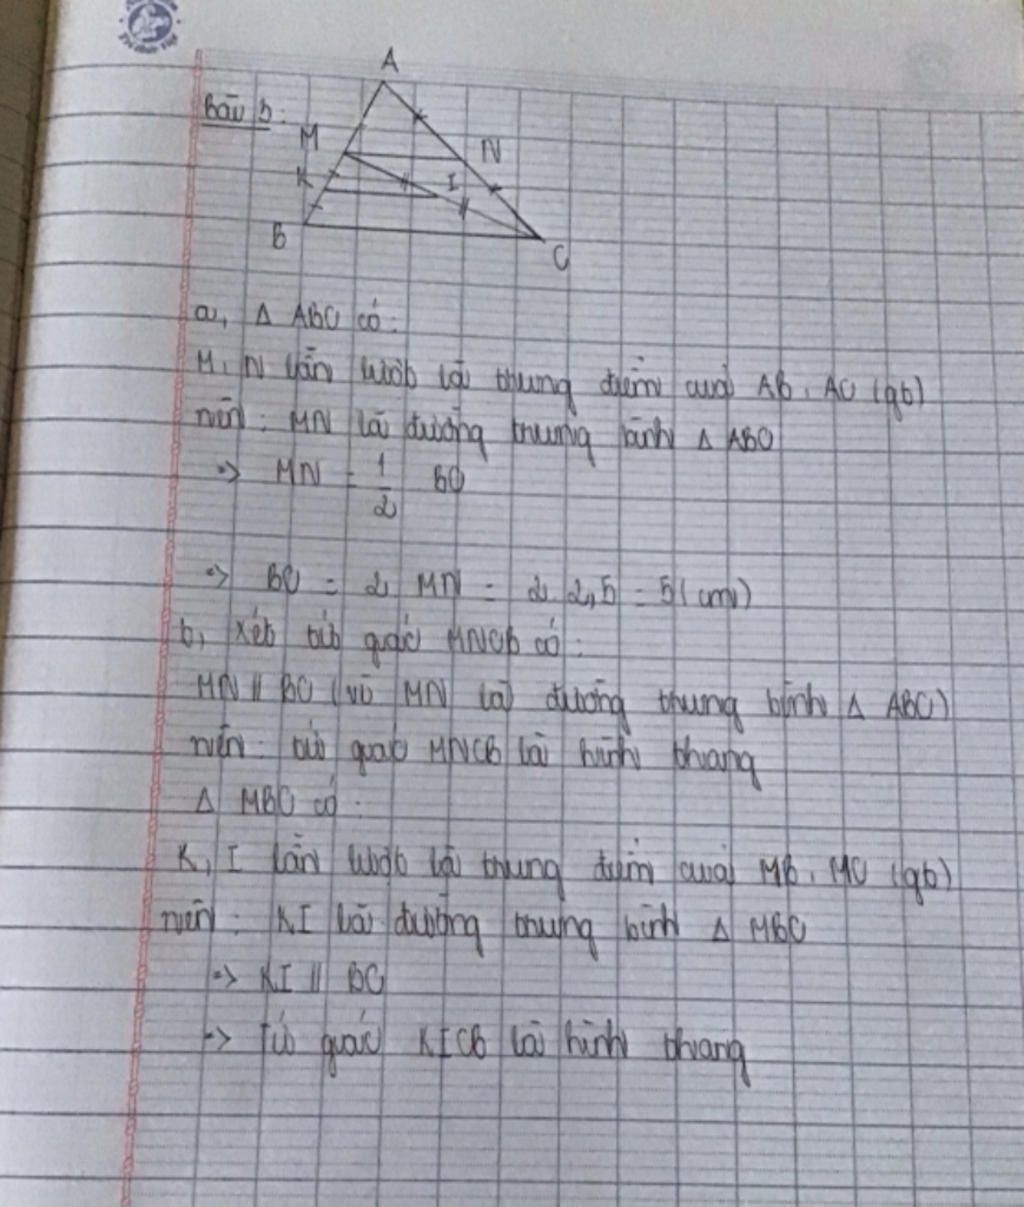 A
Bài 5:
M
N
K
I
B
C
a, Δ ABC có:
M, N lần lượt là trung điểm của AB, AC (gt)
nên: MN là đường trung bình Δ ABC
=> MN = 1/2 BC
=> BC = 2 MN = 2. 2,5 = 5 (cm)
b, Xét tứ giác MNCB có:
MN // BC (vì MN là đường trung bình Δ ABC)
nên: tứ giác MNCB là hình thang
Δ MBC có:
K, I lần lượt là trung điểm của MB, MC (gt)
nên: KI là đường trung bình Δ MBC
=> KI // BC
=> Tứ giác KICB là hình thang